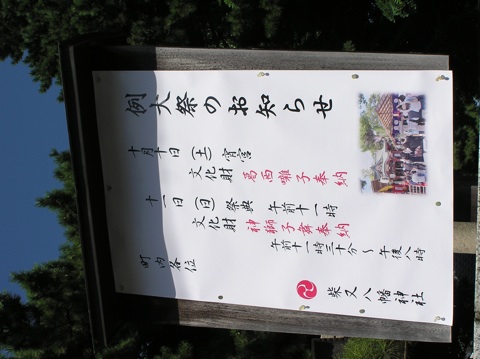 例大祭のお知らせ
十月十日(土)宵宮
文化財 葛西囃子奉納
十一日(日)祭典 午前十一時
文化財 神獅子舞奉納
午前十一時三十分~午後八時
町内各位
柴又八幡神社